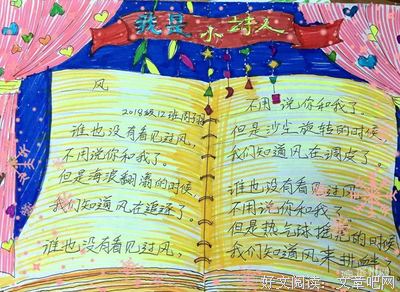 我是小诗人
风
2018级12班周子
谁也没有看见过风,
不用说你和我了。
但是海浪翻滚的时候
我们知道风在追逐了。
谁也没有看见过风,
不用说你和我了。
但是沙尘旋转的时候
我们知道风在调皮了。
谁也没有看见过风
不用说你和我了。
但是热气球摇晃的时候
我们知道风来拼
好文阅读:-文章吧网